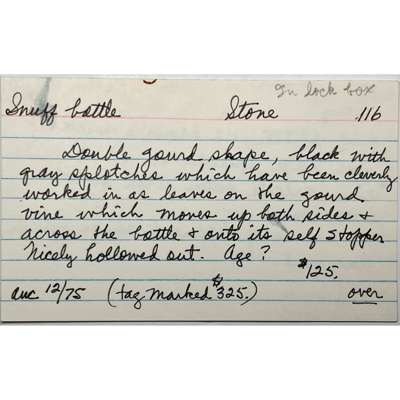 In lock box
Snuff bottle Stone 116
Double gourd shape, black with
gray splotches which have been cleverly
worked in as leaves on the gourd
vine which moves up both sides +
across the bottle + onto its self stopper
Nicely hollowed out. Age?
$125.
auc 12/75 (tag marked $325.) over